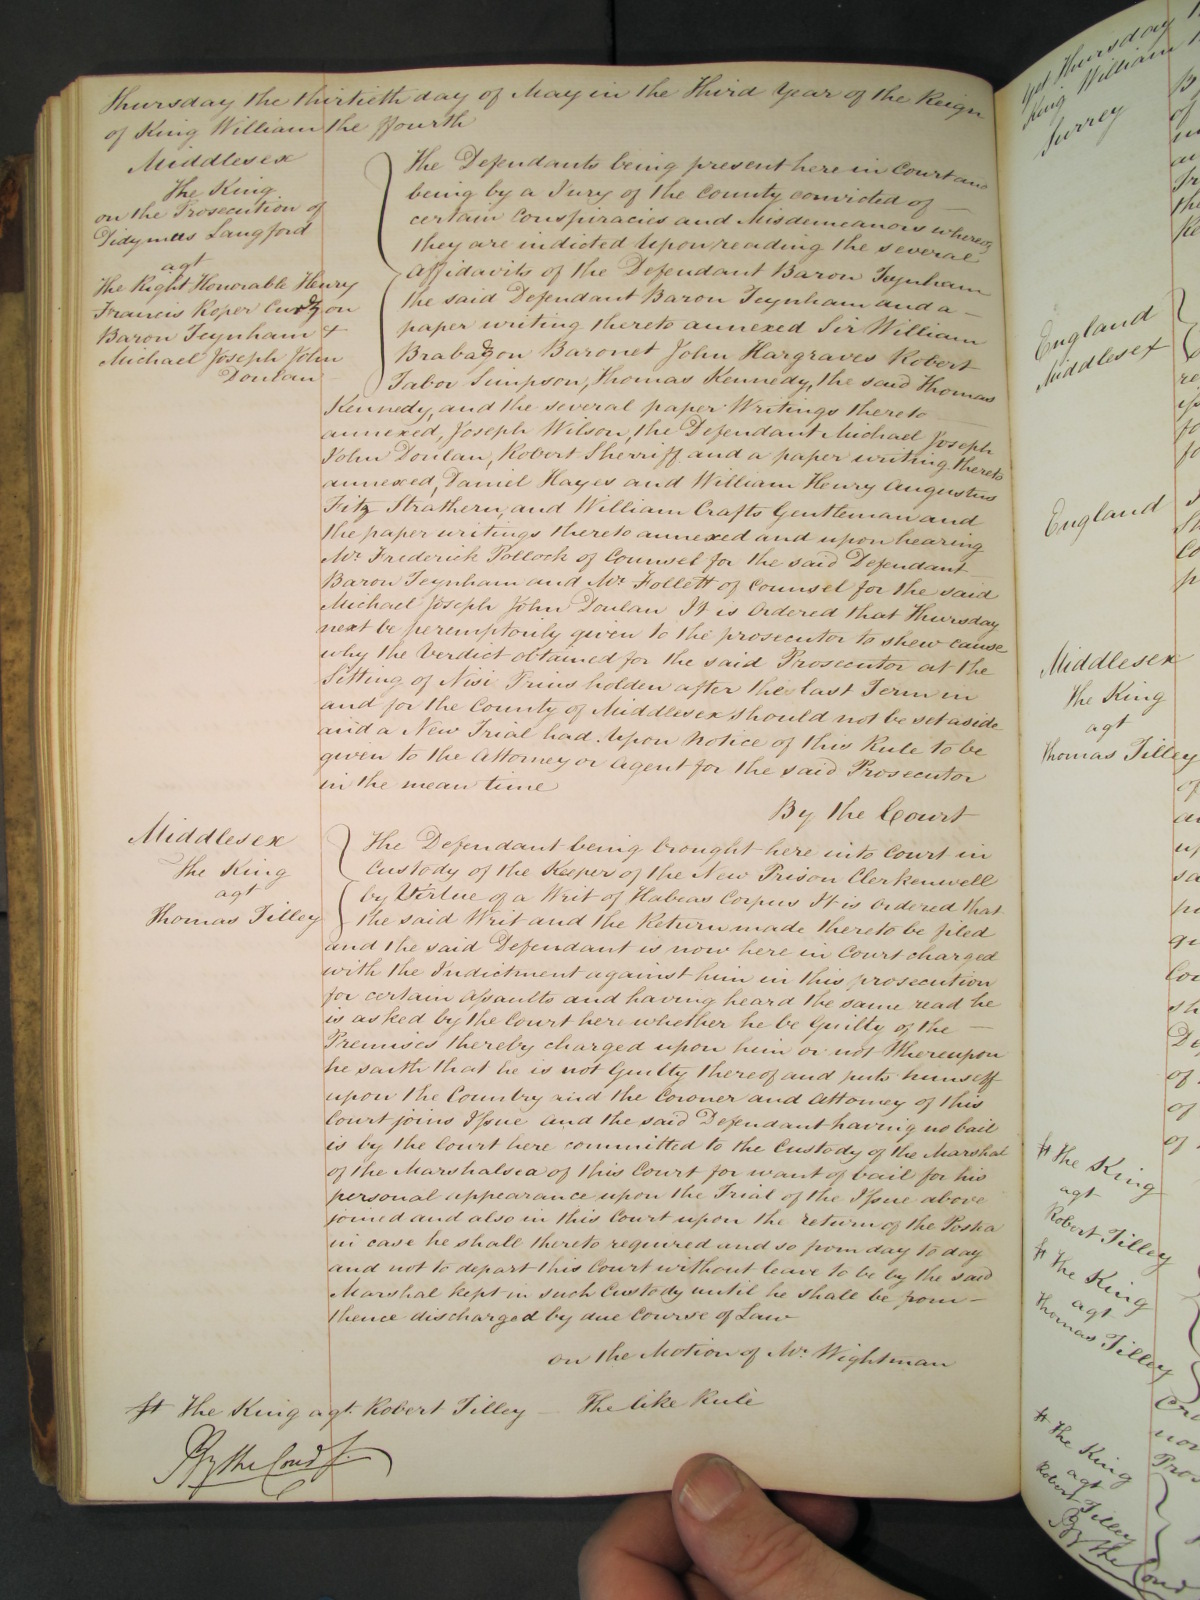 Thursday the thirtieth day of May in the Third Year of the Reign
of King William the ffourth
Middlesex
The King
on the Prosecution of
Didymus Langford
agt
The Right Honorable Henry
Francis Roper Curzon
Baron Teynham &
Michael Joseph John
Donlan
The Defendants being present here in Court and
being by a Jury of the County convicted of
certain Conspiracies and Misdemeanors whereof
they are indicted Upon reading the several
affidavits of the Defendant Baron Teynham
the said Defendant Baron Teynham and a
paper writing thereto annexed Sir William
Brabazon Baronet John Hargraves Robert
Tabor Simpson, Thomas Kennedy, the said Thomas
Kennedy, and the several paper Writings thereto
annexed, Joseph Wilson, the Defendant Michael Joseph
John Donlan, Robert Sherriff and a paper writing thereto
annexed, Daniel Hayes and William Henry Augustus
Fitz Strathern, and William Crafts Gentleman and
the paper writings thereto annexed and upon hearing
Mr. Frederick Pollock of Counsel for the said Defendant
Baron Teynham and Mr. Follett of Counsel for the said
Michael Joseph John Donlan It is Ordered that Thursday
next be peremptorily given to the prosecutor to shew cause
why the Verdict obtained for the said Prosecutor at the
Sitting of Nisi Prius holden after the last Term in
and for the County of Middlesex should not be set aside
and a New Trial had. Upon Notice of this Rule to be
given to the Attorney or Agent for the said Prosecutor
in the mean time
By the Court
Middlesex
The King
agt
Thomas Tilley
The Defendant being brought here into Court in
Custody of the Keeper of the New Prison Clerkenwell
by Virtue of a Writ of Habeas Corpus It is Ordered that
the said Writ and the Return made thereto be filed
and the said Defendant is now here in Court charged
with the Indictment against him in this prosecution
for certain Assaults and having heard the same read he
is asked by the Court here whether he be Guilty of the
Premises thereby charged upon him or not Whereupon
he saith that he is not Guilty thereof and puts himself
upon the Country and the Coroner and Attorney of this
Court joins Issue and the said Defendant having no bail
is by the Court here committed to the Custody of the Marshal
of the Marshalsea of this Court for want of bail for his
personal appearance upon the Trial of the Issue above
joined and also in this Court upon the return of the Postea
in case he shall thereto required and so from day to day
and not to depart this Court without leave to be by the said
Marshal kept in such Custody until he shall be from
thence discharged by due Course of Law
on the Motion of Mr. Wightman
The King agt. Robert Tilley The like Rule
By the Court
Yet Thursday
King William
Surrey
England
Middlesex
England
Middlesex
The King
agt
Thomas Tilley
The King
agt
Robert Tilley
The King
agt
Thomas Tilley
The King
agt
Robert Tilley
By the Court